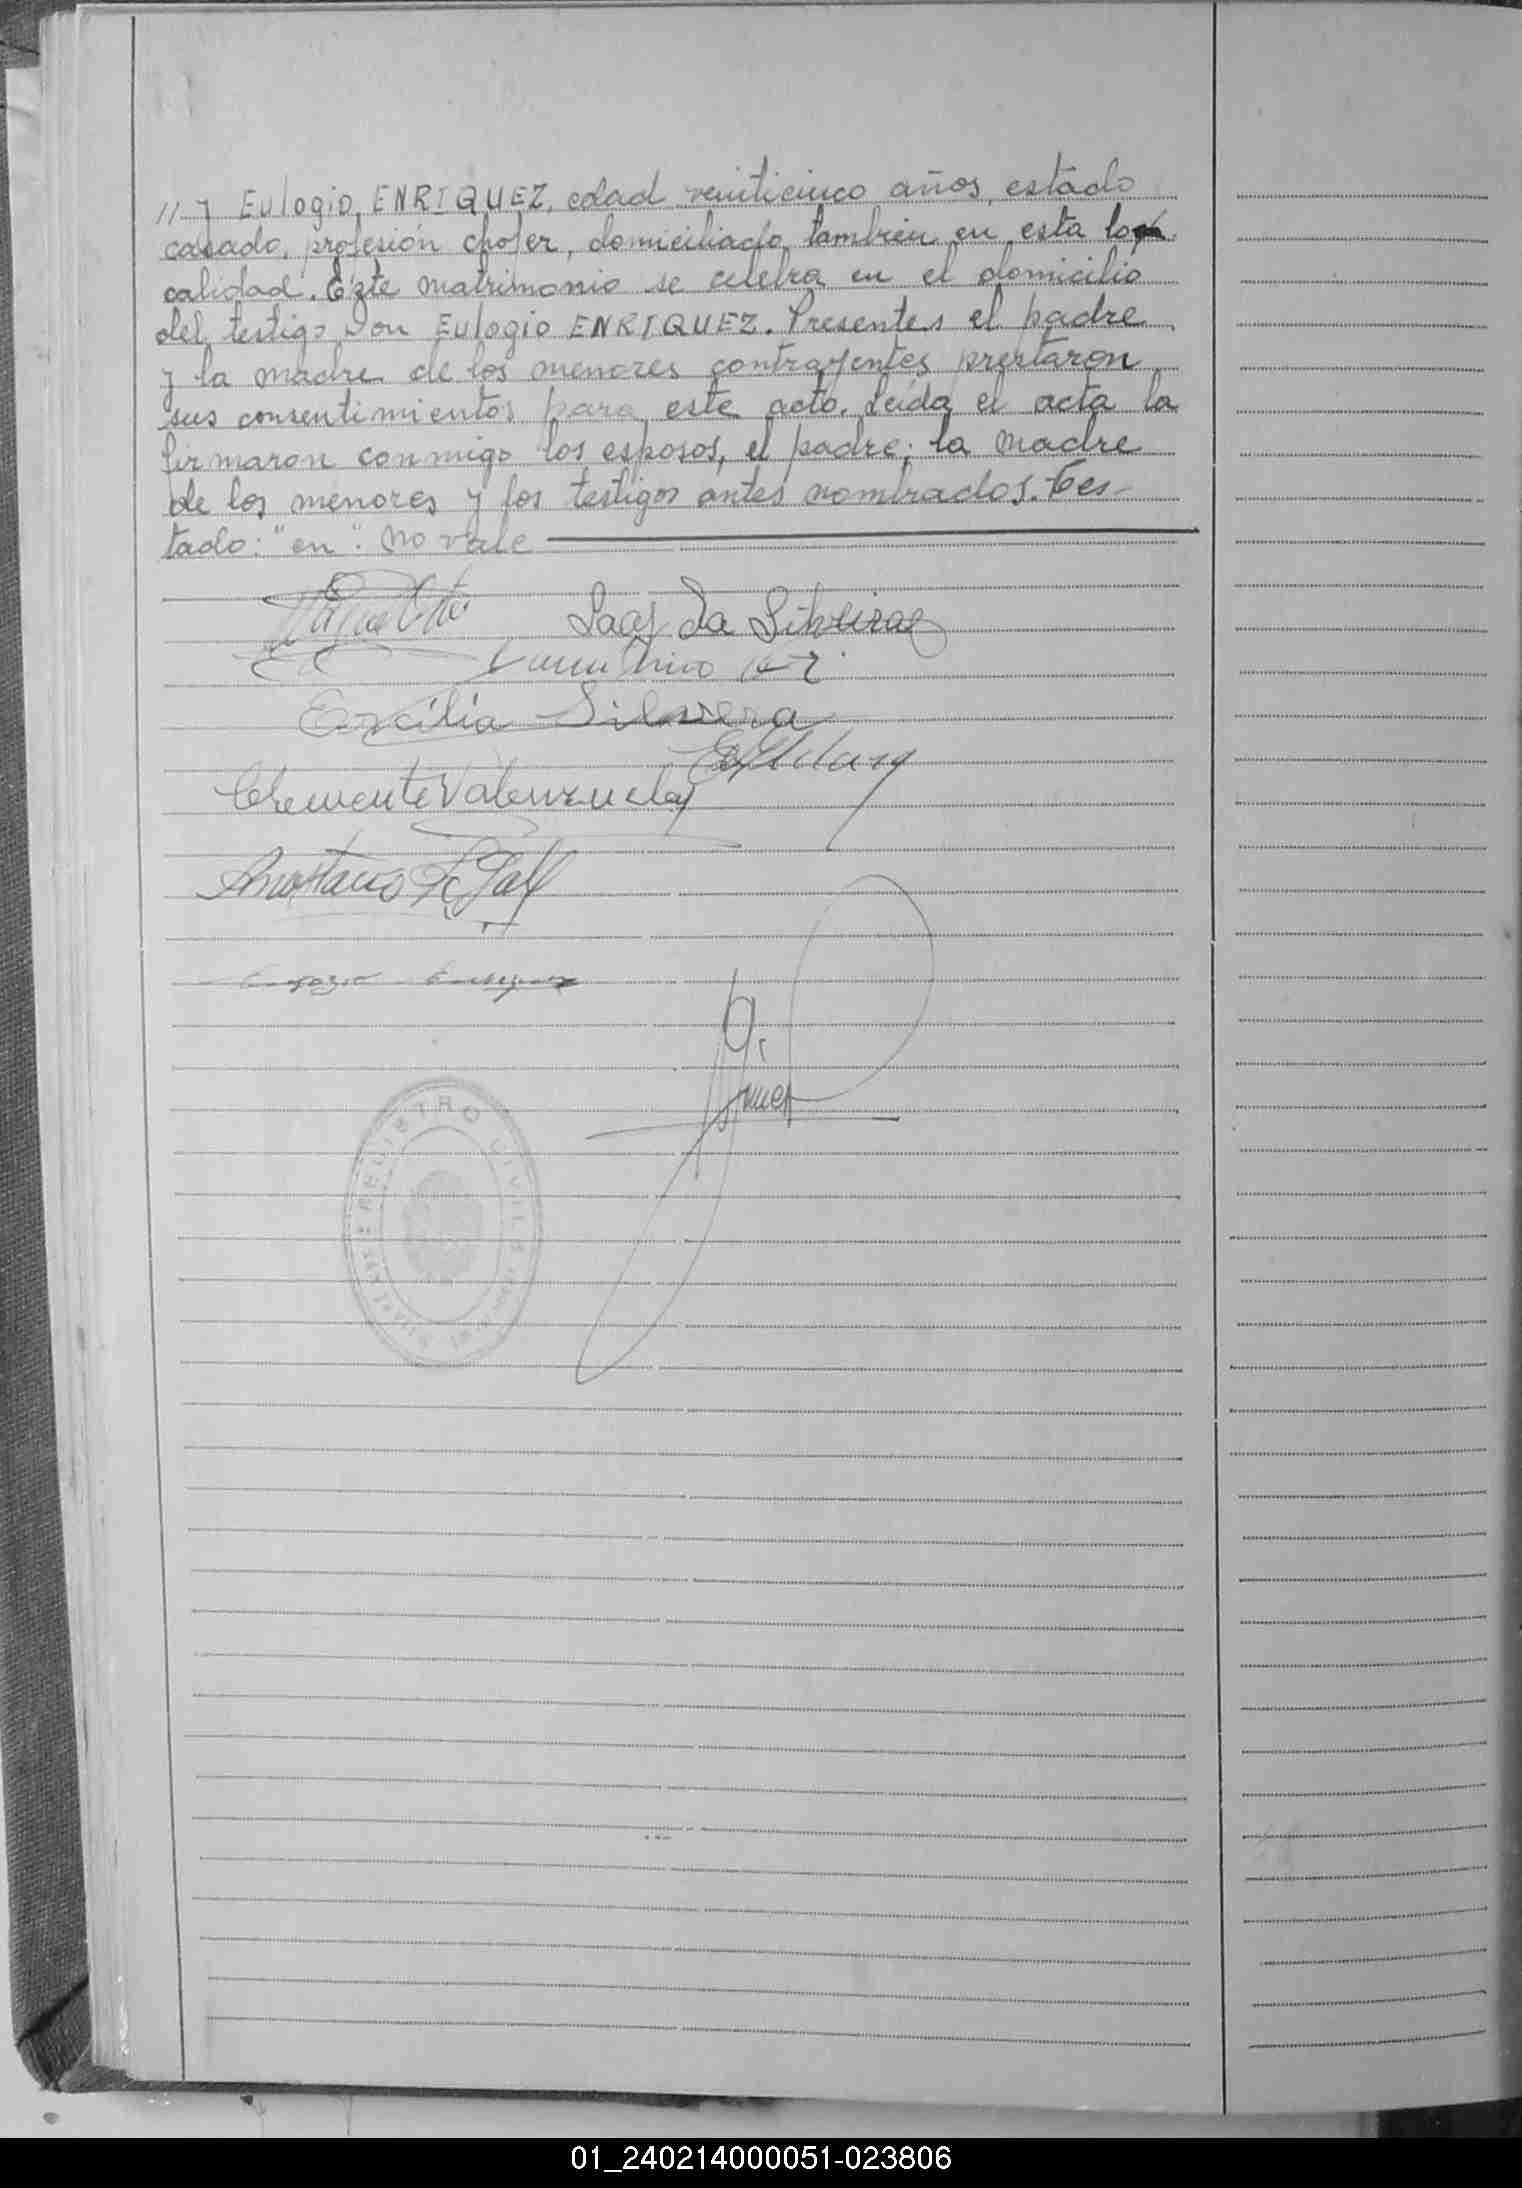 // y Eulogio ENRIQUEZ, edad veinticinco años, estado
casado, profesión chofer, domiciliado tambien en esta lo
calidad. Este matrimonio se celebra en el domicilio
del testigo Don Eulogio ENRIQUEZ. Presentes el padre
y la madre de los menores contrayentes prestaron
sus consentimientos para este acto. Leída el acta la
firmaron conmigo los esposos, el padre; la madre
de los menores y los testigos antes nombrados. Tes-
tado: "en". No vale
Da Silveira
Ercilia Silvera
Clemente Valenzuela
Anastacio
REGISTRO CIVIL
01_240214000051-023806